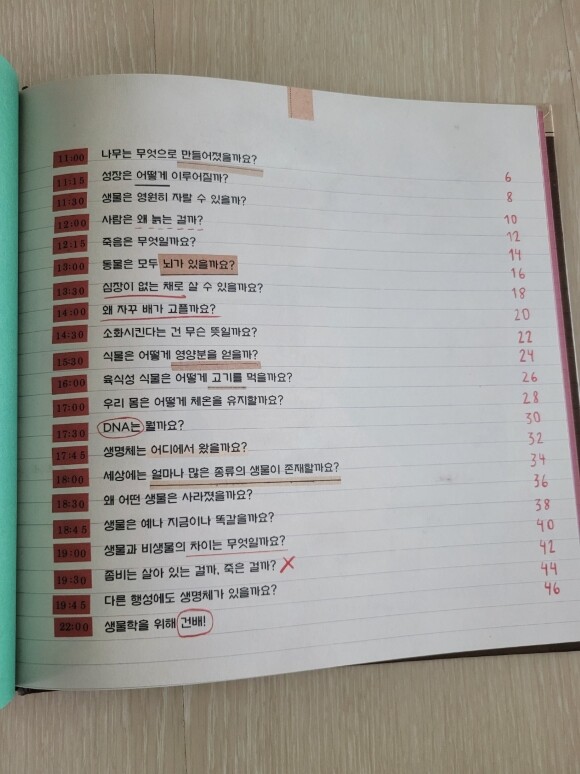 11:00 나무는 무엇으로 만들어졌을까요? 6
11:15 성장은 어떻게 이루어질까? 8
11:30 생물은 영원히 자랄 수 있을까? 10
12:00 사람은 왜 늙는 걸까? 12
12:15 죽음은 무엇일까요? 14
13:00 동물은 모두 뇌가 있을까요? 16
13:30 심장이 없는 채로 살 수 있을까요? 18
14:00 왜 자꾸 배가 고플까요? 20
14:30 소화시킨다는 건 무슨 뜻일까요? 22
15:30 식물은 어떻게 영양분을 얻을까? 24
16:00 육식성 식물은 어떻게 고기를 먹을까요? 26
17:00 우리 몸은 어떻게 체온을 유지할까요? 28
17:30 DNA는 뭘까요? 30
17:45 생명체는 어디에서 왔을까요? 32
18:00 세상에는 얼마나 많은 종류의 생물이 존재할까요? 34
18:30 왜 어떤 생물은 사라졌을까요? 36
18:45 생물은 예나 지금이나 똑같을까요? 38
19:00 생물과 비생물의 차이는 무엇일까요? 40
19:30 좀비는 살아 있는 걸까, 죽은 걸까? 42
19:45 다른 행성에도 생명체가 있을까요? 44
22:00 생물학을 위해 건배! 46